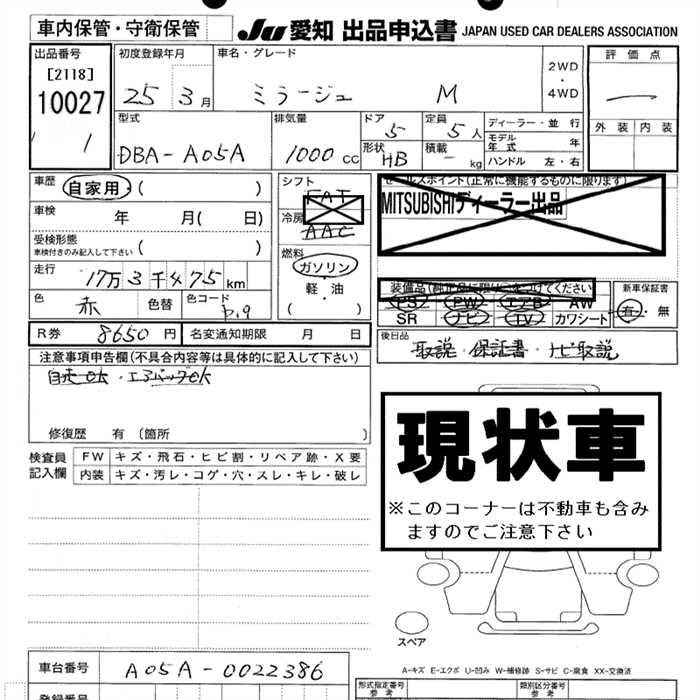 車内保管・守衛保管
JU 愛知 出品申込書 JAPAN USED CAR DEALERS ASSOCIATION
出品番号
[2118]
10027
1
初度登録年月
25 3月
車名・グレード
ミラージュ M
2WD
・
4WD
評価点
外装 内装
型式
DBA-A05A
排気量
1000 CC
ドア
5
形状
HB
定員
5人
積載
- kg
ディーラー・並行
モデル年式 年
ハンドル 左・右
車歴 自家用・( )
車検 年 月( 日)
受検形態
車検付きのみ記入して下さい ( )
走行 17万3千475km
色 赤 色替 色コード P.19
シフト
FAT
冷房
AAC
燃料
ガソリン
・
軽・油
( )
セールスポイント(正常に機能するものに限ります)
MITSUBISHIディーラー出品
装備品(純正品に限り○をつけてください)
PS PW エアB AW
SR ナビ TV カワシート
新車保証書
有・無
R券 8650円 名変通知期限 月 日
後日品
取説・保証書・ナビ取説
注意事項申告欄(不具合内容等は具体的に記入して下さい)
自走OK・エアバッグOK
修復歴 有 〔箇所 〕
検査員記入欄
FW キズ・飛石・ヒビ割・リペア跡・X要
内装 キズ・汚レ・コゲ・穴・スレ・キレ・破レ
現状車
※このコーナーは不動車も含み
ますのでご注意下さい
スペア
A-キズ E-エクボ U-凹み W-補修跡 S-サビ C-腐食 XX-交換済
車台番号 A05A-0022386
登録番号
形式指定番号
参考
類別区分番号
参考